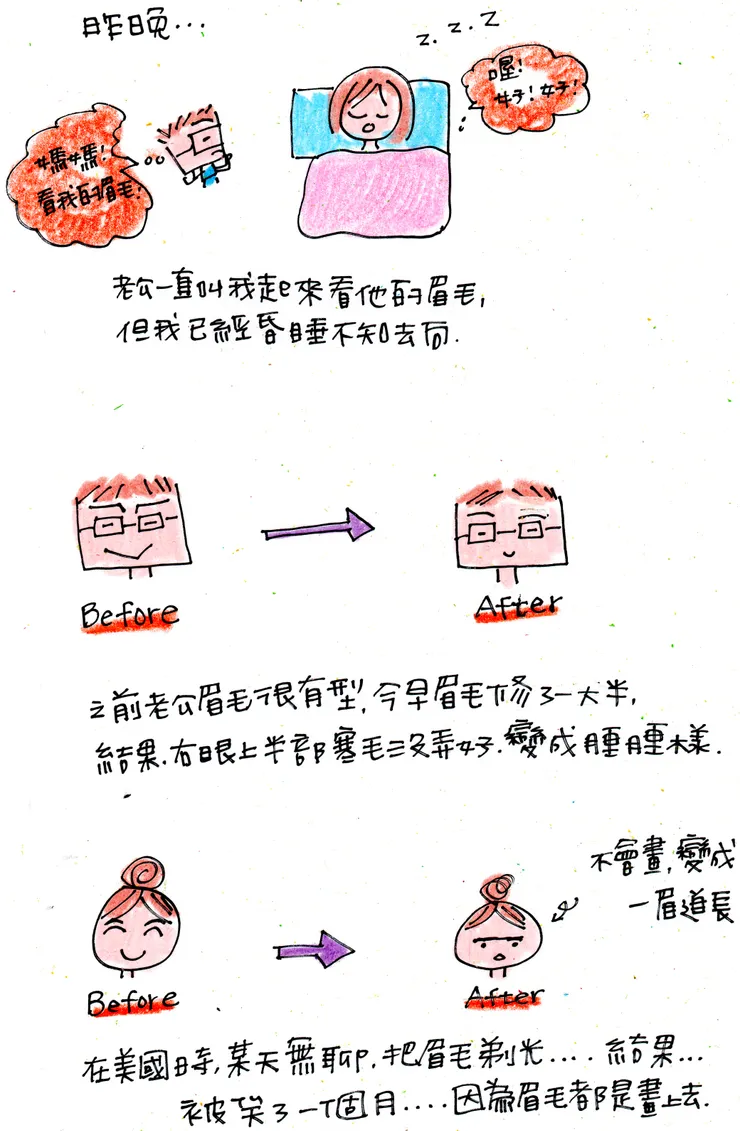 昨晚...
z. z. z
喔!
好! 好!
媽媽!
看我的眉毛!
老公一直叫我起來看他的眉毛,
但我已經昏睡不知去向.
Before
After
之前老公眉毛很有型,今早眉毛修了一大半,
結果.右眼上半部寒毛沒弄好.變成腫腫樣.
不會畫,變成
一眉道長
Before
After
在美國時,某天無聊,把眉毛剃光.... 結果...
被笑了一個月....因為眉毛都是畫上去.